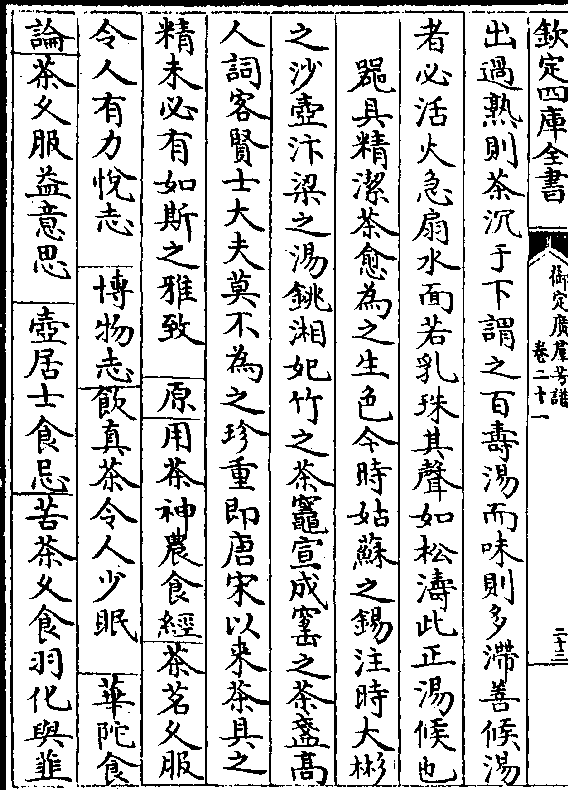 欽定四庫全書
御定廣羣芳譜
卷二十一
二十三
出過熟則茶沉于下謂之百壽湯而味則多滯善候湯
者必活火急扇水面若乳珠其聲如松濤此正湯候也
器具精潔茶愈為之生色今時姑蘇之錫注時大彬
之沙壺汴梁之湯銚湘妃竹之茶竈宣成窰之茶盞高
人詞客賢士大夫莫不為之珍重即唐宋以来茶具之
精未必有如斯之雅致 原 用茶神農食經 茶茗乆服
令人有力悅志 博物志 飲真茶令人少眠 華陀食
論 茶乆服益意思 壺居士食忌 苦茶乆食羽化與韮